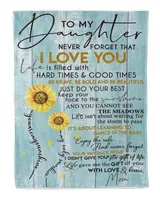 TO MY
Daughter
NEVER FORGET THAT
I LOVE YOU
Life is filled with
HARD TIMES & GOOD TIMES
BE BRAVE, BE BOLD AND BE BEAUTIFUL
JUST DO YOUR BEST
Keep your
face to the sunshine
AND YOU CANNOT SEE
THE SHADOWS
Life isn't about waiting
for the storm to pass
IT'S ABOUT LEARNING TO
DANCE IN THE RAIN
Enjoy the ride
And never forget
YOUR WAY BACK HOME
I DIDN'T GIVE YOU the gift of life
Life gave me the GIFT OF YOU
WITH LOVE & kisses,
Mom
You are my sunshine